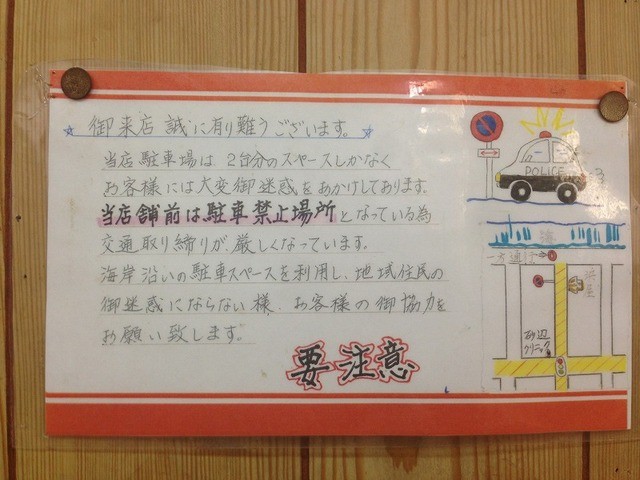 ☆ 御来店 誠に有り難うございます。☆
当店駐車場は 2台分のスペースしかなく
お客様には大変御迷惑をおかけしております。
当店舗前は駐車禁止場所となっている為
交通取り締りが厳しくなっています。
海岸沿いの駐車スペースを利用し、地域住民の
御迷惑にならない様、お客様の御協力を
お願い致します。
要注意
POLICE
海
一方通行
砂辺
クリニック